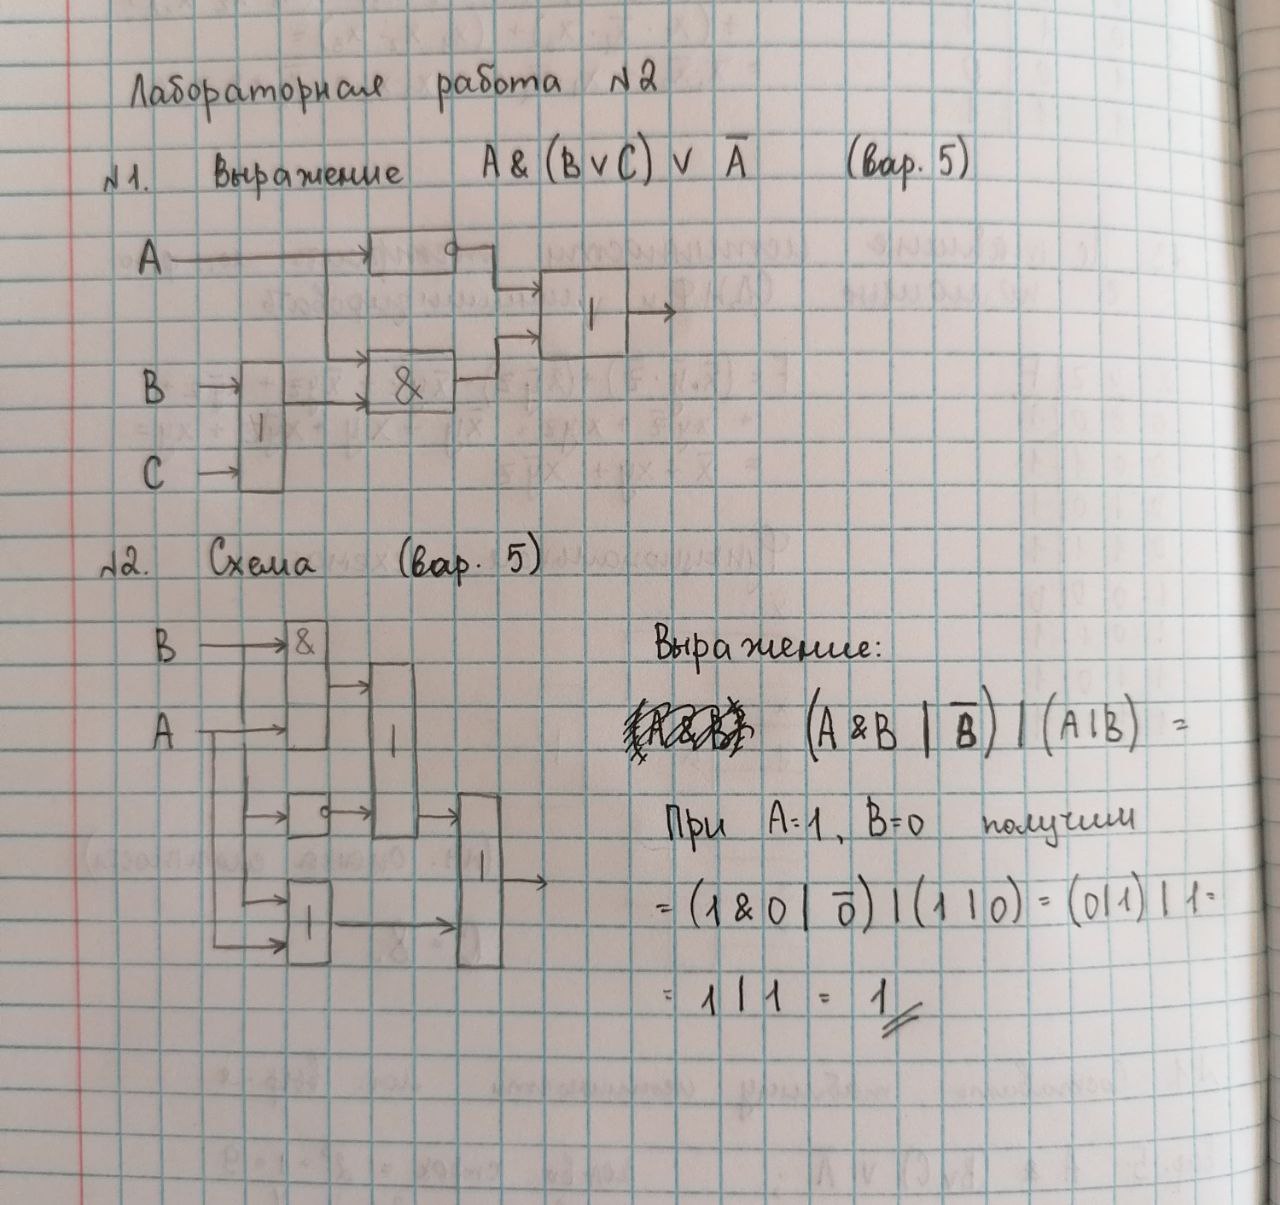 Лабораторная работа №2
№1. Выражение A & (B v C) v A̅ (вар. 5)
A
1
B
&
1
C
№2. Схема (вар. 5)
B
&
Выражение:
A
1
(A & B | B̅) | (A | B) =
При A=1, B=0 получим
1
1
= (1 & 0 | 0̅) | (1 | 0) = (0 | 1) | 1 =
= 1 | 1 = 1